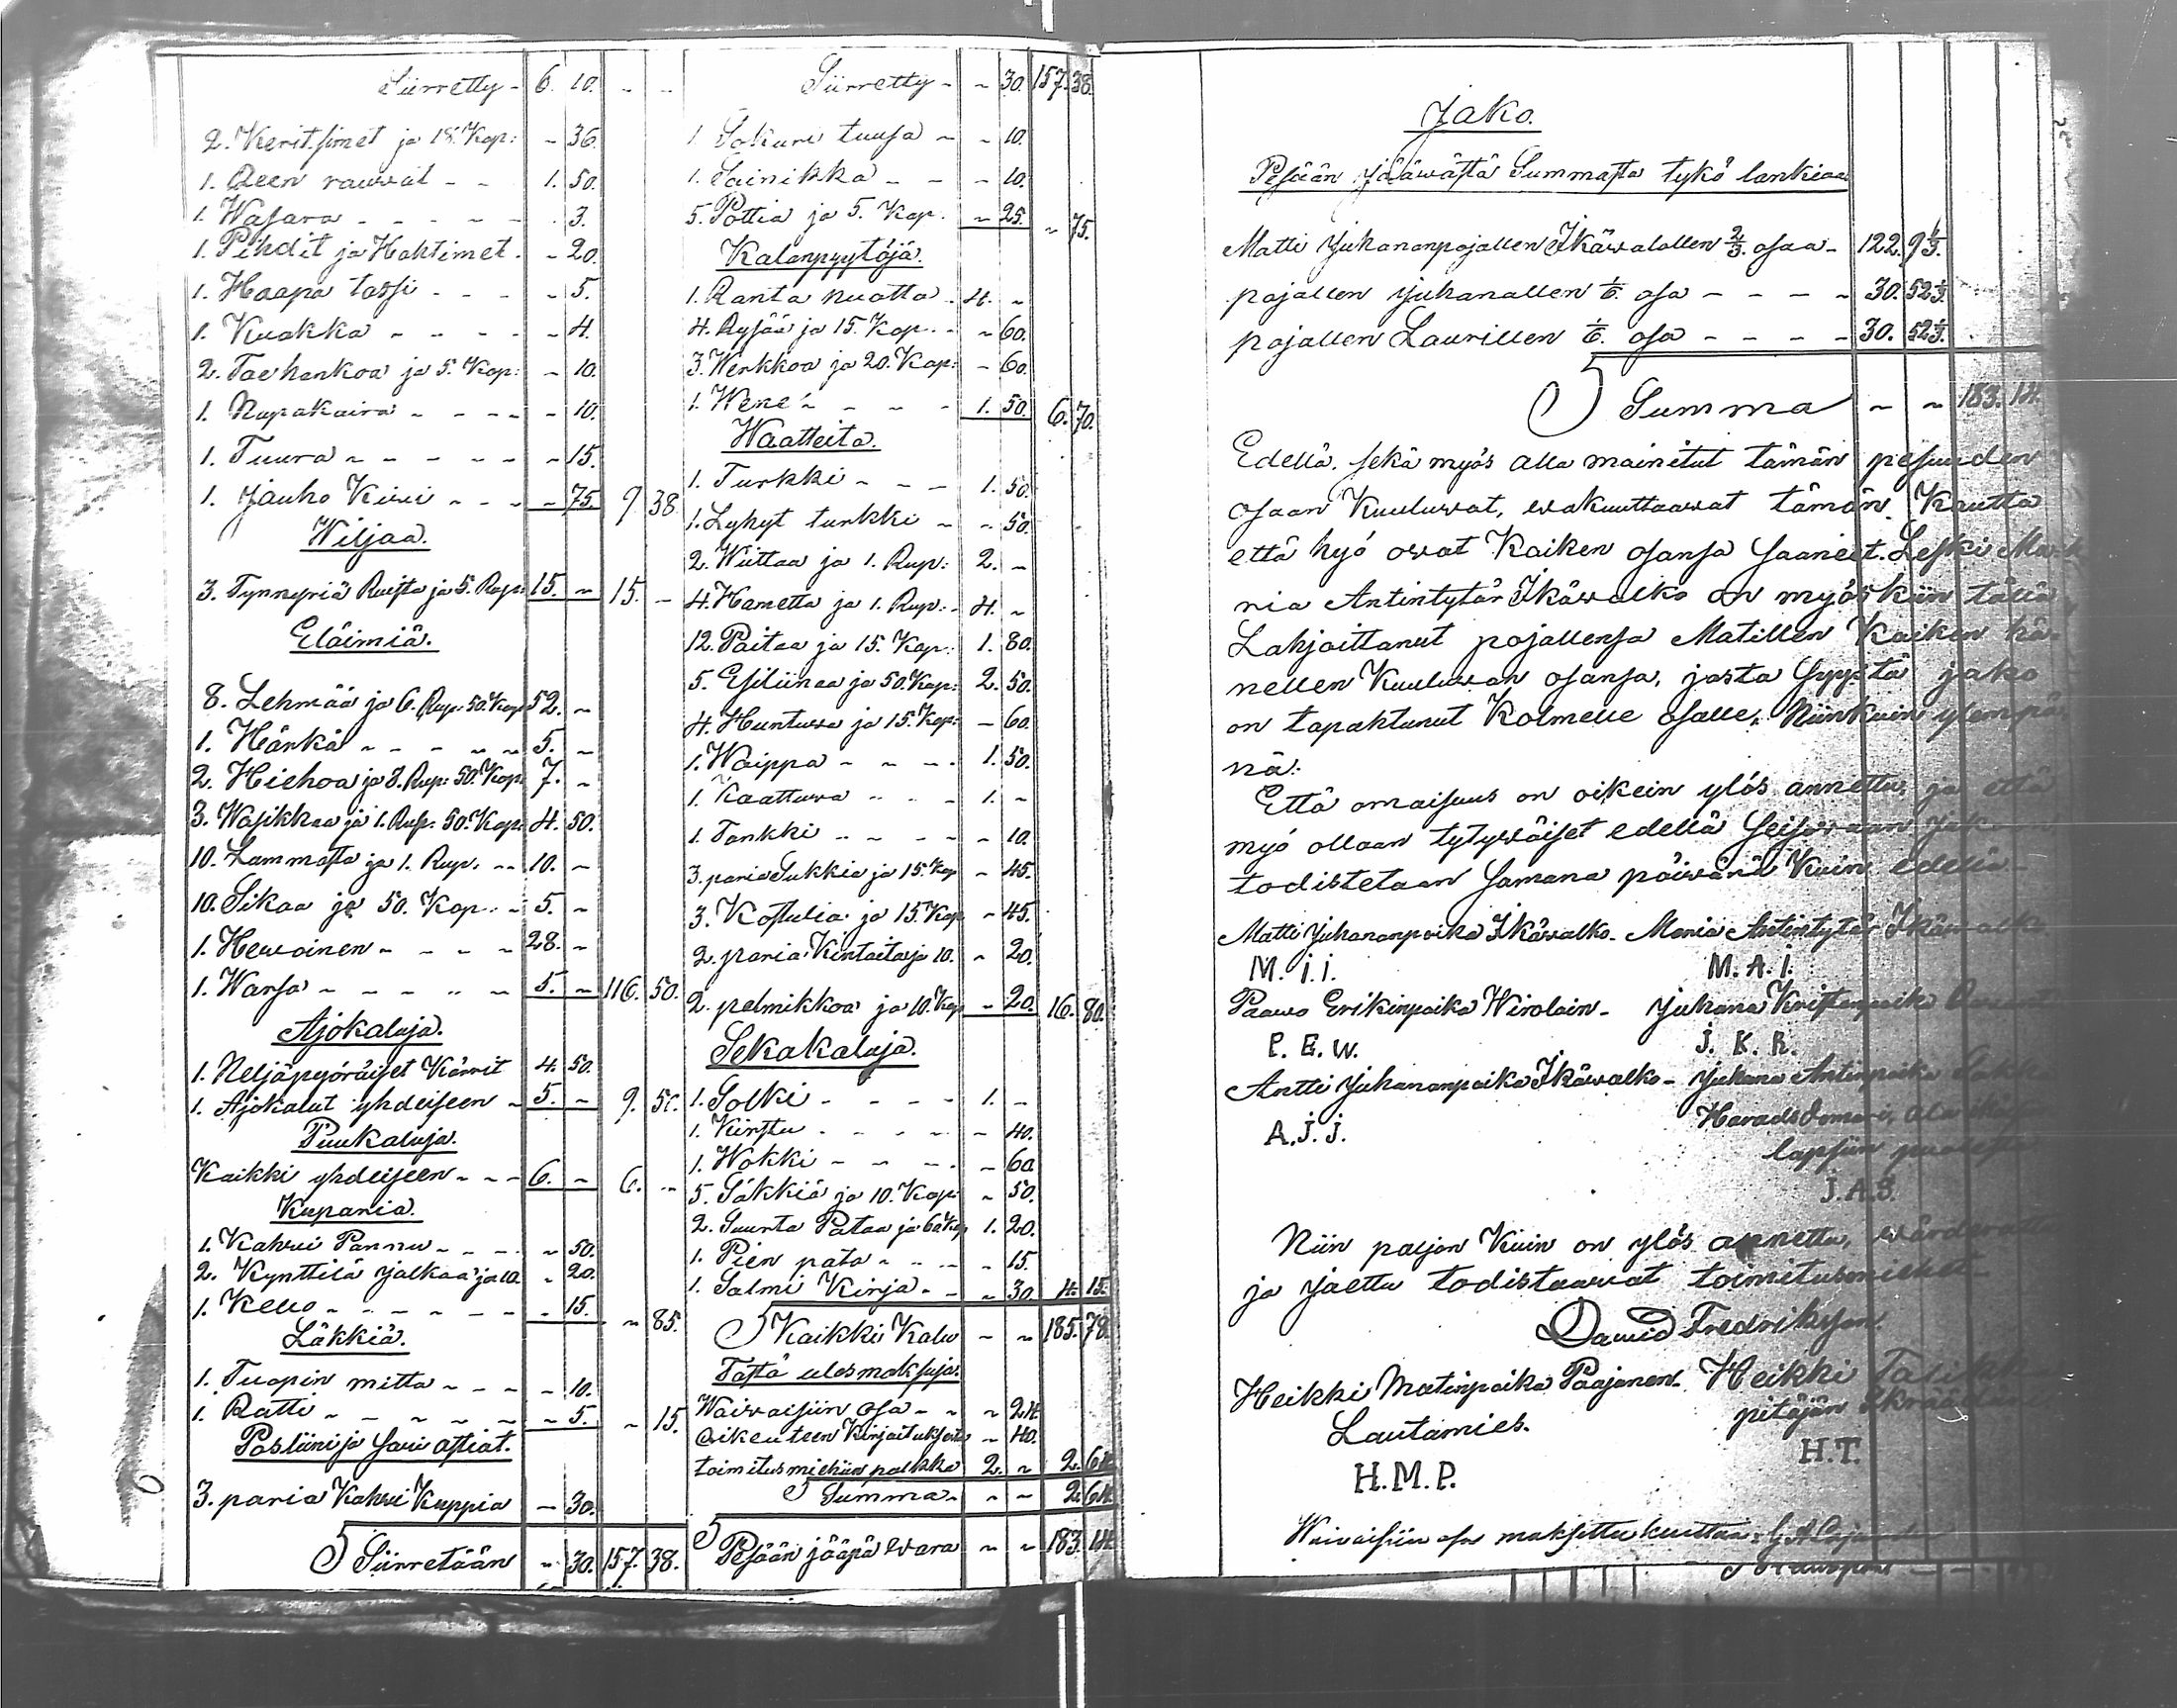 Siirretty - 6. 10. - -
2. Keritsimet ja 18. Kop: - 36.
1. Reen rauwat - - 1. 50.
1. Wasara - - - - - 3.
1. Pihdit ja Hohtimet - - 20.
1. Haapa tassi - - - - 5.
1. Kuokka - - - - - 4.
2. Taehankoa ja 5. Kop: - 10.
1. Napakaira - - - - - 10.
1. Tuura - - - - - - 15.
1. Jauho Kiwi - - - - 75. 9. 38.
Wiljaa.
3. Tynnyriä Ruista ja 5. Rup: 15. - 15. -
Eläimiä.
8. Lehmää ja 6. Rup: 50. Kop: 52. -
1. Hänkä - - - - - 5. -
2. Hiehoa ja 3. Rup: 50. Kop: 7. -
3. Wasikkaa ja 1. Rup: 50. Kop: 4. 50.
10. Lammasta ja 1. Rup. - - 10. -
10. Sikaa ja 50. Kop: - 5. -
1. Hewoinen - - - - 28. -
1. Warsa - - - - - 5. - 116. 50.
Ajokaluja.
1. Neljäpyöräiset Kärrit 4. 50.
1. Ajokalut yhdeiseen - 5. - 9. 50.
Puukaluja.
Kaikki yhdeiseen - - - 6. - 6. -
Kuparia.
1. Kahwi Pannu - - - - 50.
2. Kynttilä jalkaa ja 10. - 20.
1. Kello - - - - - - 15. - 85.
Läkkiä.
1. Tuopin mitta - - - - 10.
1. Ratti - - - - - - 5. - 15.
Posliini ja Sawi astiat.
3. paria Kahwi Kuppia - 30.
Siirretään - 30. 157. 38.
Siirretty - - 30. 157. 38.
1. Sokuri tuusa - - 10.
1. Sainikka - - - 10.
5. Pottia ja 5. Kop. - 25. - 75.
Kalanpyytöjä.
1. Ranta nuotta - 4. -
4. Rysää ja 15. Kop. - - 60.
3. Werkkoa ja 20. Kop: - 60.
1. Wene - - - - 1. 50. 6. 70.
Waatteita.
1. Turkki - - - 1. 50.
1. Lyhyt turkki - - 50.
2. Wiittaa ja 1. Rup: 2. -
4. Hametta ja 1. Rup: - 4. -
12. Paitaa ja 15. Kop: 1. 80.
5. Esiliinaa ja 50. Kop: 2. 50.
4. Huntuwa ja 15. Kop: - 60.
1. Waippa - - - 1. 50.
1. Kaattuwa - - - 1. -
1. Tankki - - - - 10.
3. paria Sukkia ja 15. Kop - 45.
3. Kostulia ja 15. Kop - 45.
2. paria Kintaita ja 10. - 20.
2. pelmikkoa ja 10. Kop - 20. 16. 80.
Sekakaluja.
1. Solki - - - - 1. -
1. Kirstu - - - - - 40.
1. Wokki - - - - - 60.
5. Säkkiä ja 10. Kop. - 50.
2. Suurta Pataa ja 60 Kop 1. 20.
1. Pien pata - - - - 15.
1. Salmi Kirja - - - 30. 4. 15.
Kaikki Kalu - - 185. 78.
Tästä ulosmaksuja.
Waiwaisiin osa - - - 24.
Oikeuteen Kirjoituksesta - 40.
toimitusmiehiin palkka 2. - 2. 64.
Summa - - - 2. 64.
Pesään jääpä wara - - 183. 14.
Jako.
Pesään jääwästä Summasta tykö lankiaa
Matti Juhananpojallen Ikäwalollen 2/3. osaa - 122. 9 1/3.
pojallen Juhanallen 1/6. osa - - - - 30. 52 1/3.
pojallen Laurillen 1/6. osa - - - - 30. 52 1/3.
Summa - - 183. 14.
Edellä, sekä myös alla mainitut tämän pesuuden
osaan Kuuluwat, wakuuttaawat tämän Kautta
että hyö owat Kaiken osansa saaneet. Leski Ma
ria Antintytär Ikäwalko on myöskiin tällä
Lahjoittanut pojallensa Matillen Kaiken hä-
nellen Kuuluwan osansa, josta syystä jako
on tapahtunut Kolmelle osalle. Niinkuin ylempä
nä.
Että omaisuus on oikein ylös annettu, ja että
myö ollaan tytywäiset edellä seisowaan jako
todistetaan Samana päiwänä Kuin edellä
Matti Juhananpoika Ikäwalko - Maria Antintytär Ikäwalk
M. J. I. M. A. I.
Paawo Erikinpoika Wirolain - Juhana Kristerpoika
P. E. W. J. K. R.
Antti Juhananpoika Ikäwalko - Juhana Antinpoika
A. J. J. Haradsdomari,
lapsiin puolesta
J. A. S.
Niin paljon Kuin on ylös annettu, wärderattu
ja jaettu todistaawat toimitusmiehet
Dawid Fredriksson
Heikki Matinpoika Paajanen - Heikki
Lautamies. pitäjän
H. M. P. H. T.
Waiwaisiin osa maksettu kuittaa: